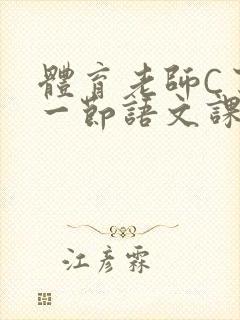 體育老師C
一節語文課
江彥霖